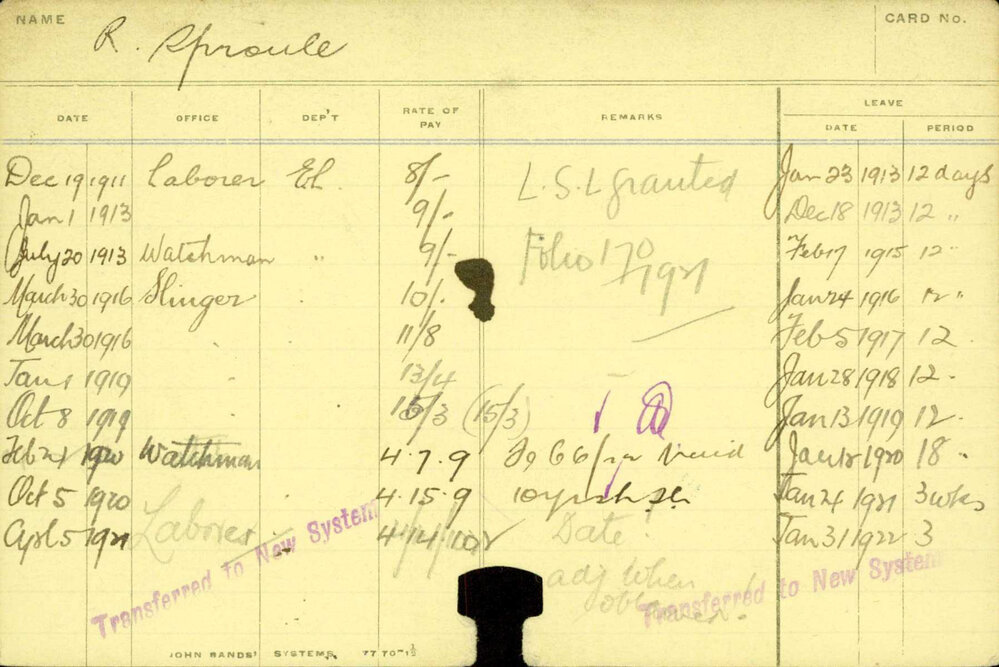 NAME R. Sproule CARD No.
LEAVE
DATE OFFICE DEP'T RATE OF PAY REMARKS DATE PERIOD
Dec 19 1911 Laborer El. 8/- L.S.L granted Jan 23 1913 12 days
Jan 1 1913 9/- Dec 18 1913 12 "
July 20 1913 Watchman " 9/- Folio 170/1921 Feb 17 1915 12 "
March 30 1916 Slinger 10/- Jan 24 1916 12 "
March 30 1916 11/8 Feb 5 1917 12
Jan 1 1919 13/4 Jan 28 1918 12
Oct 8 1919 15/3 (15/3) Jan 13 1919 12
Feb 1920 Watchman 4.7.9 66/ Jan 12 1920 18 "
Oct 5 1920 4.15.9 Jan 24 1921 3 wks
Apl 5 1921 Laborer 4/14/10 Date Jan 31 1922 3
adj when
Transferred to New System
Transferred to New System
JOHN SANDS' SYSTEMS.